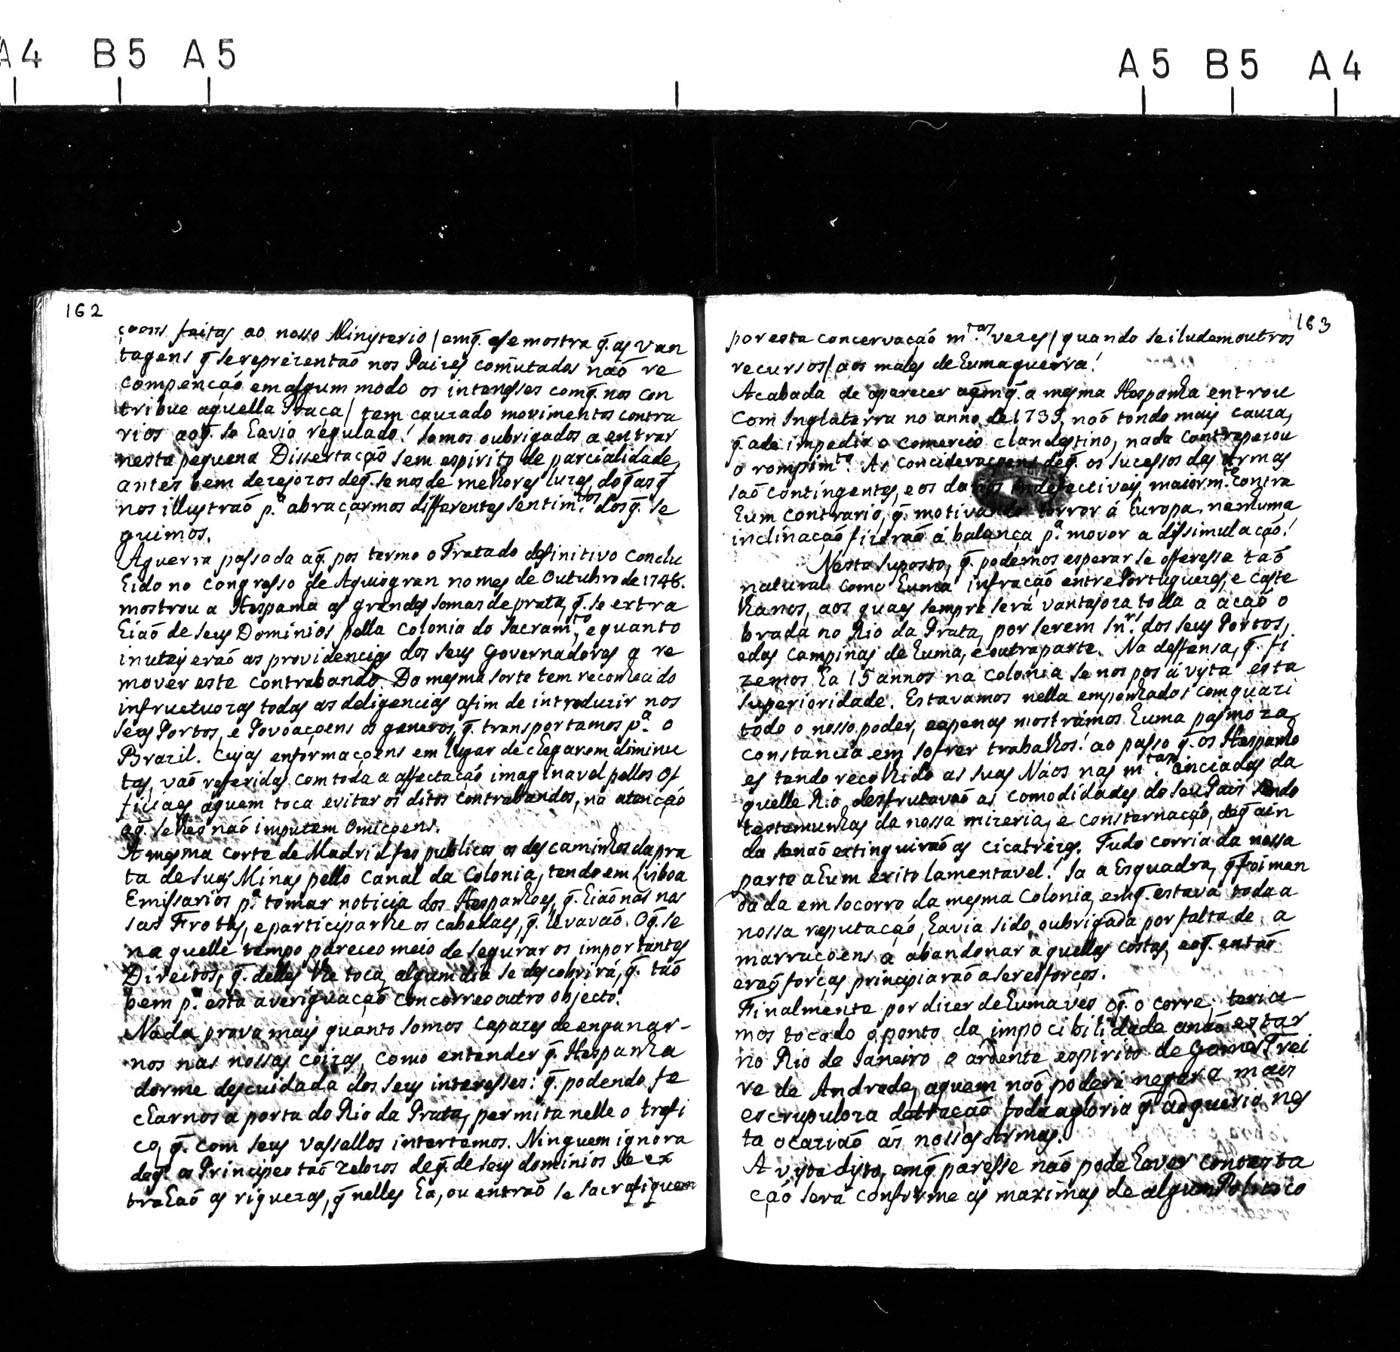 A4 B5 A5
A5 B5 A4
162
çoens feitas ao nosso Ministerio / emq̃. se mostra q̃. as van
tagens q̃ se reprezentaõ nos Paizes comutados naõ re
compençaõ em algum modo os interesses comq̃. nos con
tribue aquella Praca / tem cauzado movimentos contra
rios aoq̃. se Eavia regulado! Somos oubrigados a entrar
nesta pequena Dissertaçaõ sem espirito de parcialidade,
antes bem dezejozos deq̃. se nos de melhores luzes, do q̃ as q̃
nos illustraõ p.ª abraçarmos differentes sentim.tos dos q̃. se
guimos.
Aguerra passada aq̃. pos termo o Tratado definitivo conclu
Eido no congresso de Aquisgran no mes de Outubro de 1748.
mostrou a Hespanha as grandes somas de prata, q̃. se extra
Eiaõ de seus Dominios pella Colonia do Sacram.to, e quanto
inuteis eraõ as providencias dos seus Governadores a re
mover este contrabando. Da mesma sorte tem reconhecido
infructuozas todas as deligencias afim de introduzir nos
seus Portos, e Povoaçoens os generos, q̃. transportamos p.ª o
Brazil. Cujas enformaçoens em lugar de cEegarem diminu
tas, vaõ referidas com toda a afectaçaõ imaginavel pellos Of
ficiaes aquem toca evitar os ditos contrabandos, na atençaõ
aq̃. se lhe naõ imputem Omiçoens.
A mesma Corte de Madrid fes publicos os descaminhos da pra
ta de suas Minas pello Canal da Colonia, tendo em Lisboa
Emissarios p.ª tomar noticia dos Hespanhoes, q̃. Eiaõ nas nos
sas Frotas, e participarlhe os cabedaes, q̃. levavaõ. Oq̃. se
naquelle tempo pareceo meio de segurar os importantes
Direitos, q̃. delles lhe toca, algum dia se descobrirá, q̃. taõ
bem p.ª esta averiguaçaõ concorreo outro objecto.
Nada prova mais quanto somos capazes de enganar-
nos nas nossas coizas, como entender q̃. Hespanha
dorme descuidada dos seus interesses: q̃. podendo fe
cEarnos a porta do Rio da Prata, permita nelle o trafi
co, q̃. com seus vassallos intertemos. Ninguem ignora
deq̃. a Principes taõ zelozos deq̃. de seus dominios se ex
traEaõ as riquezas, q̃ nelles Ea, ou entraõ se sacrafiquem
163
por esta concervaçaõ m.tas vezes / quando se iludem outros
recursos / aos males de Euma guerra!
Acabada de aparecer aq̃m q̃. a mesma Hespanha entrou
Com Inglaterra no anno de 1739, naõ tendo mais cauza,
q̃. a de impedir o comercio clandestino, nada contrapezou
o rompim.to. As concideraçoens deq̃. os sucessos das Armas
saõ contingentes, e os danos indefectiveis, maiorm.te contra
Eum contrario, q̃. motiva terror á Europa, nenhuma
inclinaçaõ fizeraõ á balança p.ª mover a dissimulaçaõ!
Nesta suposto, q̃. podemos esperar se offeressa taõ
natural como Euma infraçaõ entre Portuguezes, e caste
lhanos, aos quaes sempre será vantajoza toda a açaõ o
brada no Rio da Prata, por serem Snr.es dos seus Portos,
e das Campinas de Euma, e outra parte. Na deffensa, q̃. fi
zemos Ea 15 annos na Colonia se nos pos á vista esta
superioridade. Estavamos nella empenhados com quazi
todo o nosso poder, e apenas mostrámos Euma pasmoza
constancia em sofrer trabalhos! ao passo q̃. os Hespanho
es tendo recolhido as suas Náos nas m.tas enciadas da
quelle Rio, desfrutavaõ as comodidades do seu Pais sendo
testemunhas da nossa mizeria, e consternaçaõ, deq̃ ain
da senaõ extinguiraõ as cicatrizes. Tudo corria da nossa
parte a Eum exito lamentavel! Ja a Esquadra, q̃ foi man
dada em socorro da mesma Colonia, emq̃. estava toda a
nossa reputaçaõ, Eavia sido oubrigada por falta de a
marraçoens a abandonar aquellas costas, eoq̃. entaõ
eraõ forças principiaraõ a ser esforços.
Finalmente por dizer de Euma ves oq̃. o corre, teria
mos tocado o ponto da impocibilidade anaõ estar
no Rio de Janeiro o ardente espirito de Gomes Frei
re de Andrade, aquem naõ poderá negar a mais
escrupuloza detracaõ toda a gloria q̃. adqueriraõ nes
ta ocaziaõ as nossas Armas.
A vista disto, emq̃ paresse naõ pode Eaver contesta
çaõ será conforme as maximas de algum Politico